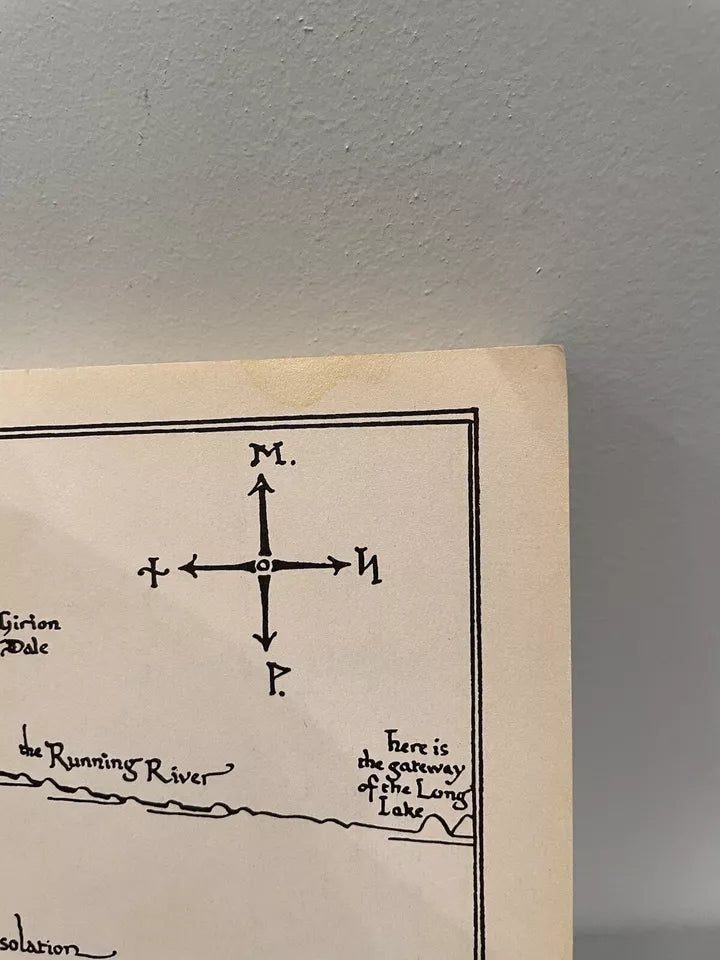 M.
+ И
P.
Girion
Dale
the Running River
Here is
the gateway
of the Long
Lake
solation